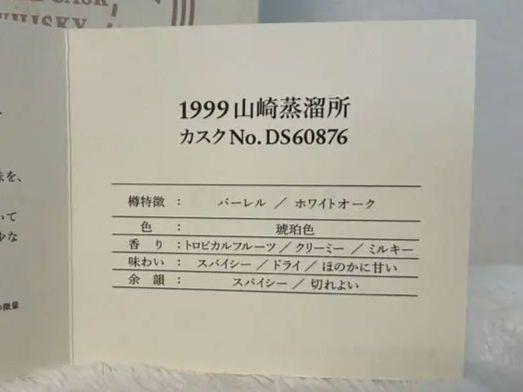 CASK
WHISKY
味を、
いて
少な
の微量
1999山崎蒸溜所
カスクNo.DS60876
樽特徴 : バーレル / ホワイトオーク
色 : 琥珀色
香り : トロピカルフルーツ / クリーミー / ミルキー
味わい : スパイシー / ドライ / ほのかに甘い
余韻 : スパイシー / 切れよい